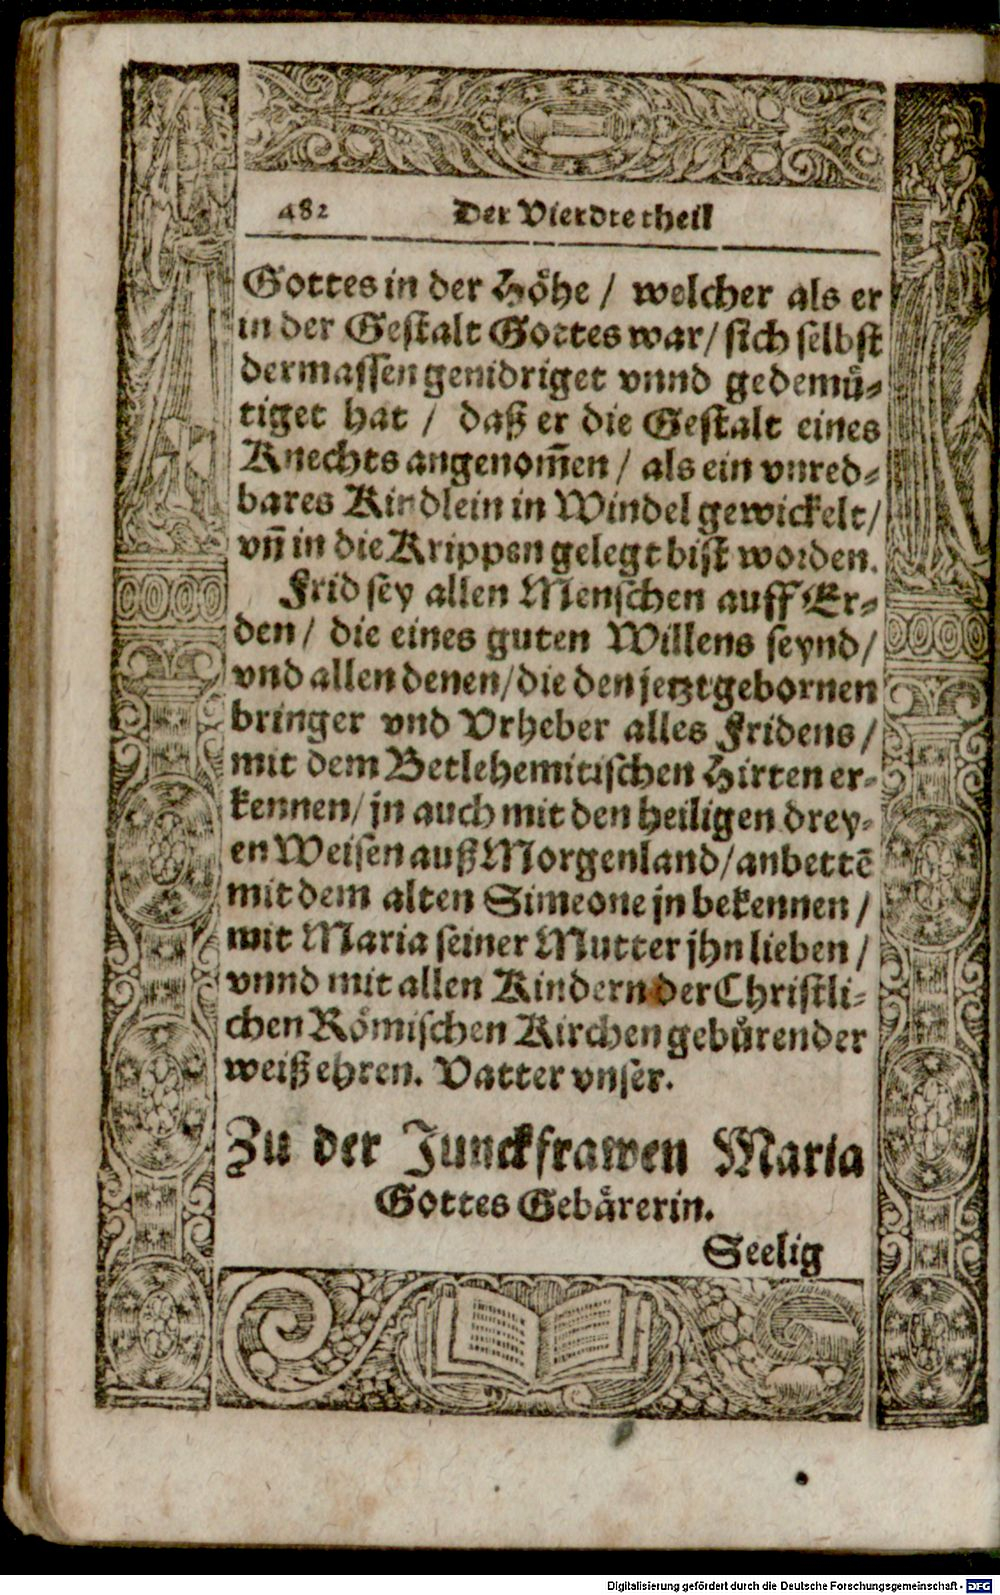 482 Der Vierdte theil
Gottes in der Höhe / welcher als er
in der Gestalt Gottes war / sich selbst
dermassen genidriget vnnd gedemuͤ-
tiget hat / daß er die Gestalt eines
Knechts angenom̃en / als ein vnred-
bares Kindlein in Windel gewickelt /
vñ in die Krippen gelegt bist worden.
Frid sey allen Menschen auff Er-
den / die eines guten Willens seynd /
vnd allen denen / die den jetzt gebornen
bringer vnd Vrheber alles Fridens /
mit dem Betlehemitischen Hirten er-
kennen / jn auch mit den heiligen drey-
en Weisen auß Morgenland / anbettē
mit dem alten Simeone jn bekennen /
mit Maria seiner Mutter jhn lieben /
vnnd mit allen Kindern der Christli-
chen Römischen Kirchen gebuͤrender
weiß ehren. Vatter vnser.
Zu der Junckfrawen Maria
Gottes Gebaͤrerin.
Seelig
Digitalisierung gefördert durch die Deutsche Forschungsgemeinschaft - DFG